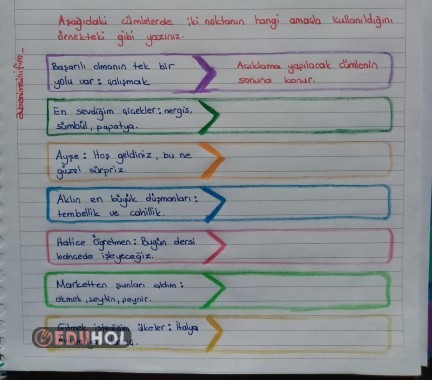 Aşağıdaki cümlelerde iki noktanın hangi amaçla kullanıldığını
örnekteki gibi yazınız.
Başarılı olmanın tek bir
yolu var: çalışmak
Açıklama yapılacak cümlenin
sonuna konur.
En sevdiğim çiçekler: nergis,
sümbül, papatya.
Ayşe: Hoş geldiniz, bu ne
güzel sürpriz.
Aklın en büyük düşmanları:
tembellik ve cahillik.
Hatice Öğretmen: Bugün dersi
bahçede işleyeceğiz.
Marketten şunları aldım:
ekmek, zeytin, peynir.
Gitmek istediğim ülkeler: İtalya
EDUHOL